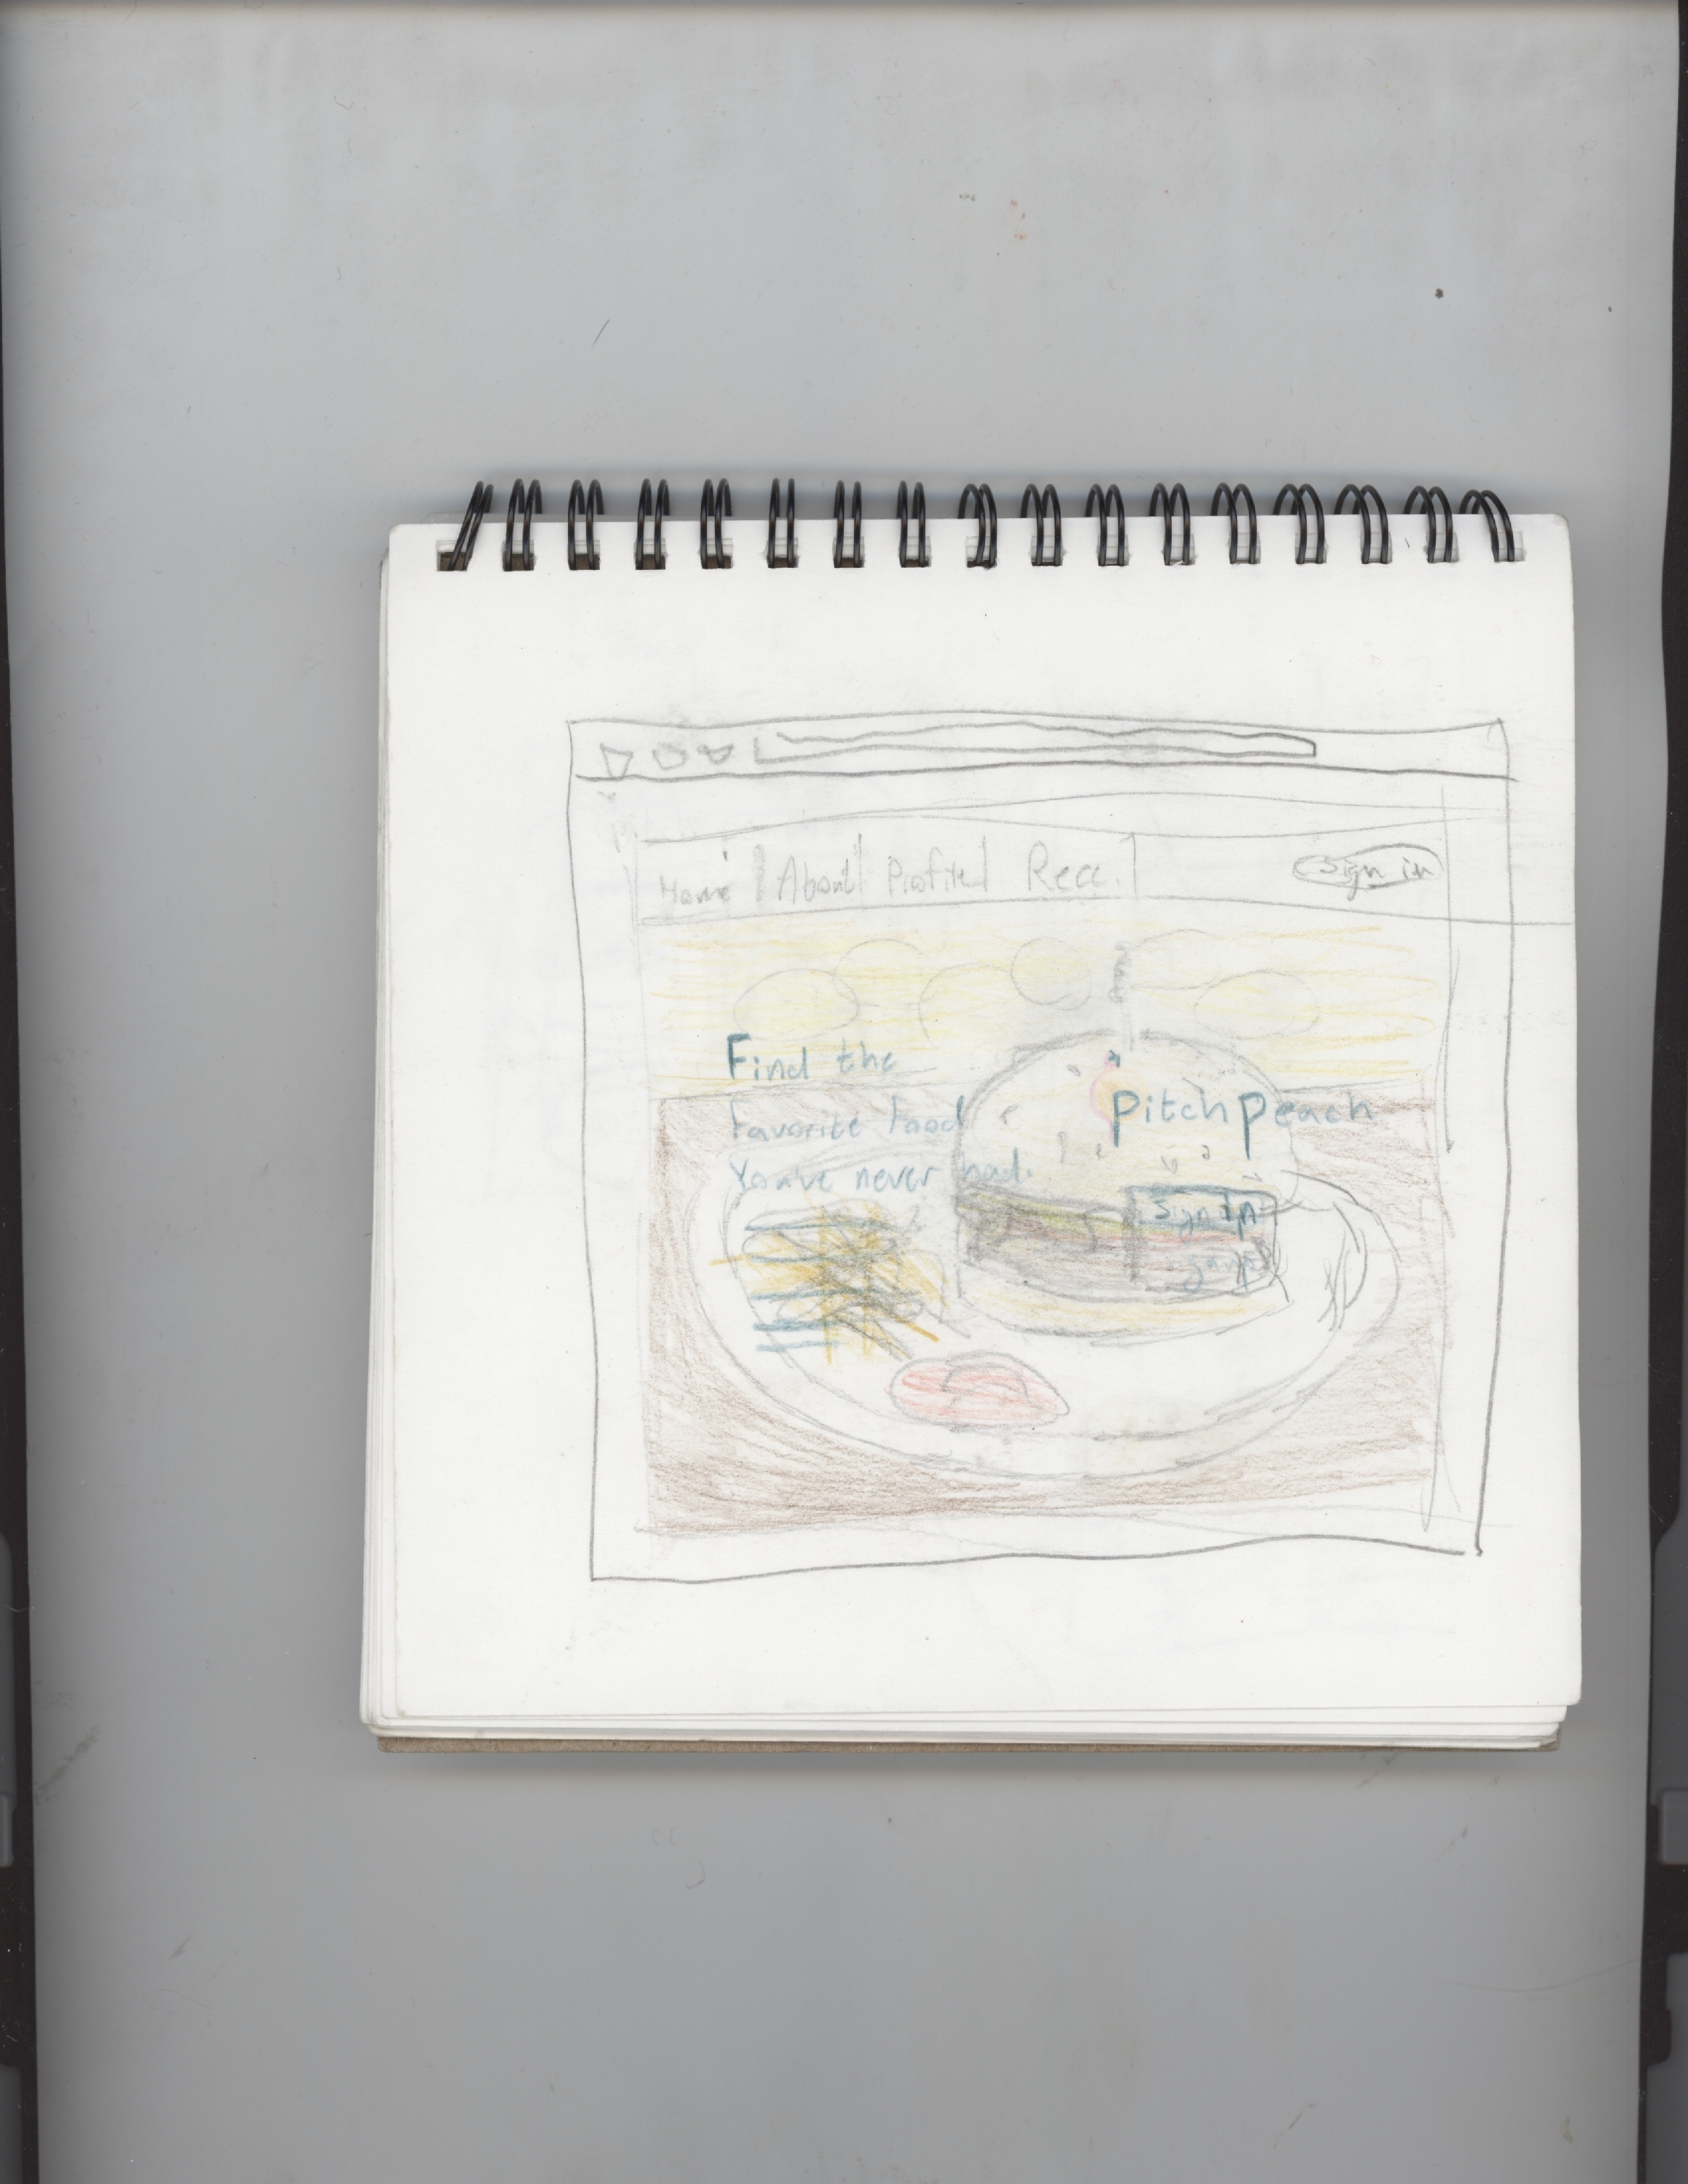 Home About Profile Recc. Sign in
Find the
Favorite Food
You've never had.
PitchPeach
Sign Up